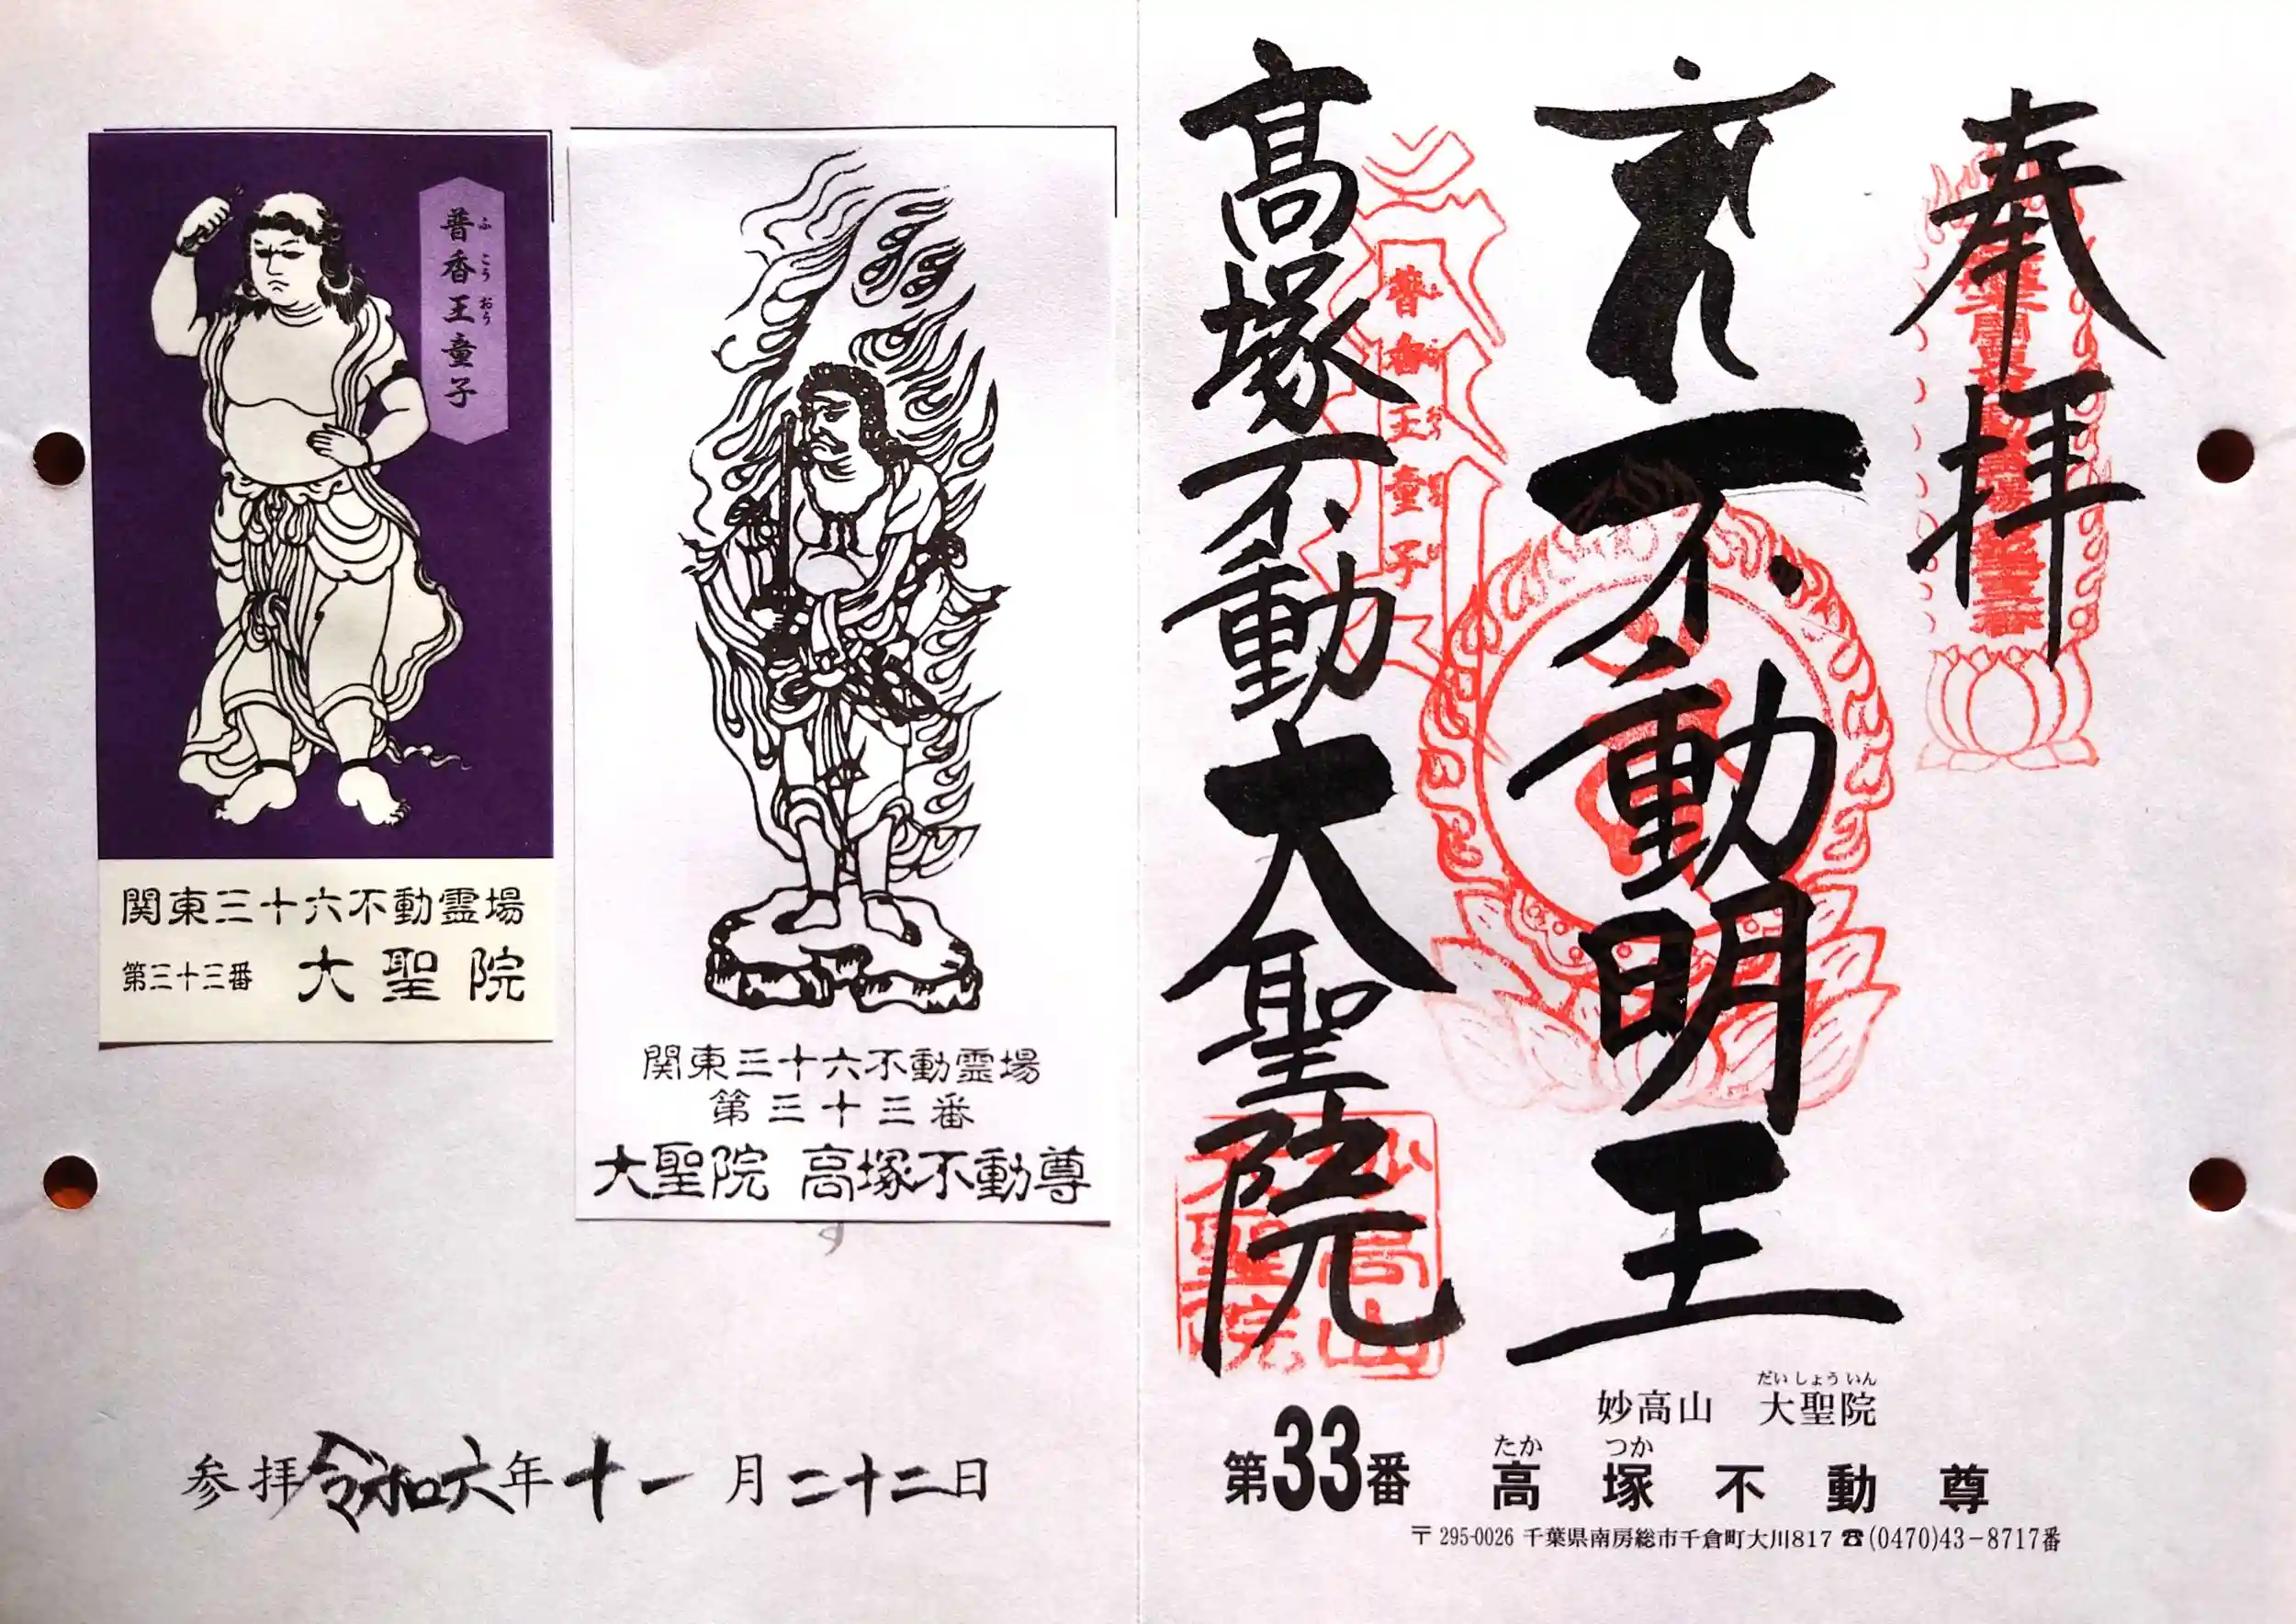 奉拝
不動明王
高塚不動大聖院
普香王童子
ふこうおう
妙高山
大聖院
妙高山 大聖院
だいしょういん
第33番 高塚不動尊
たか つか
〒295-0026 千葉県南房総市千倉町大川817 ☎(0470)43-8717番
関東三十六不動霊場
第三十三番
大聖院 高塚不動尊
普香王童子
ふこうおう
関東三十六不動霊場
第三十三番 大聖院
参拝令和六年十一月二十二日